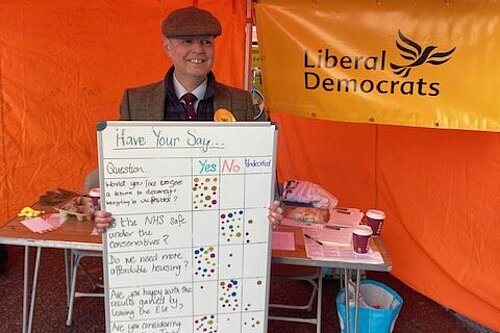 Liberal
Democrats
Have Your Say...
Question
Yes
No
Undecided
Would you like to see
a return to decency +
integrity to
Is the NHS safe
under the
Conservatives?
Do we need more
affordable housing?
Are you happy with the
results gained by
leaving the EU?
Are you considering